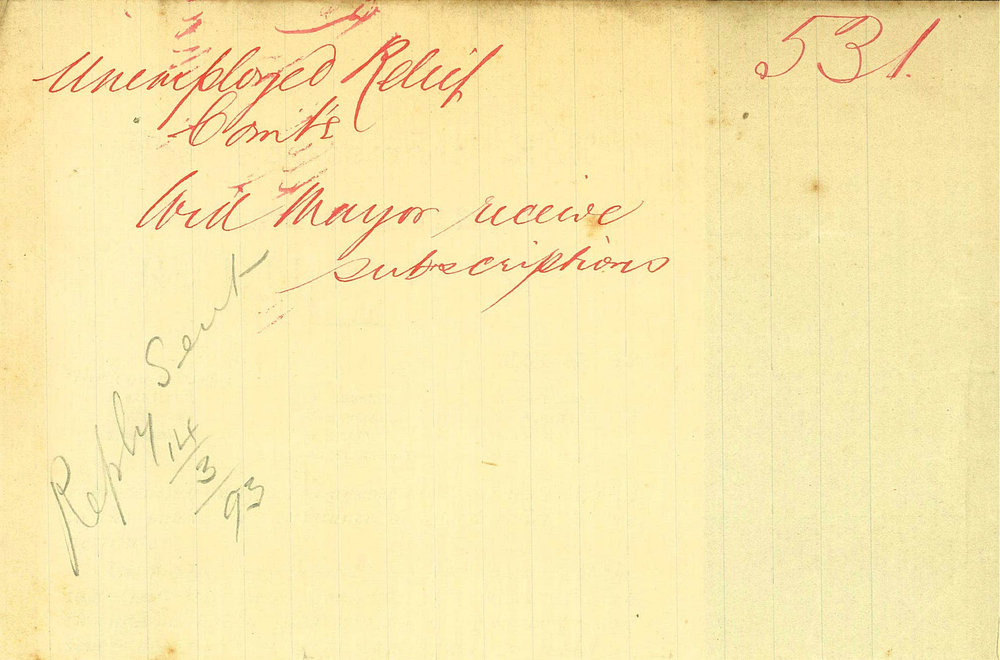 531.
Unemployed Relief
Comt'e
Will Mayor receive
subscriptions
Reply Sent
14/3/93